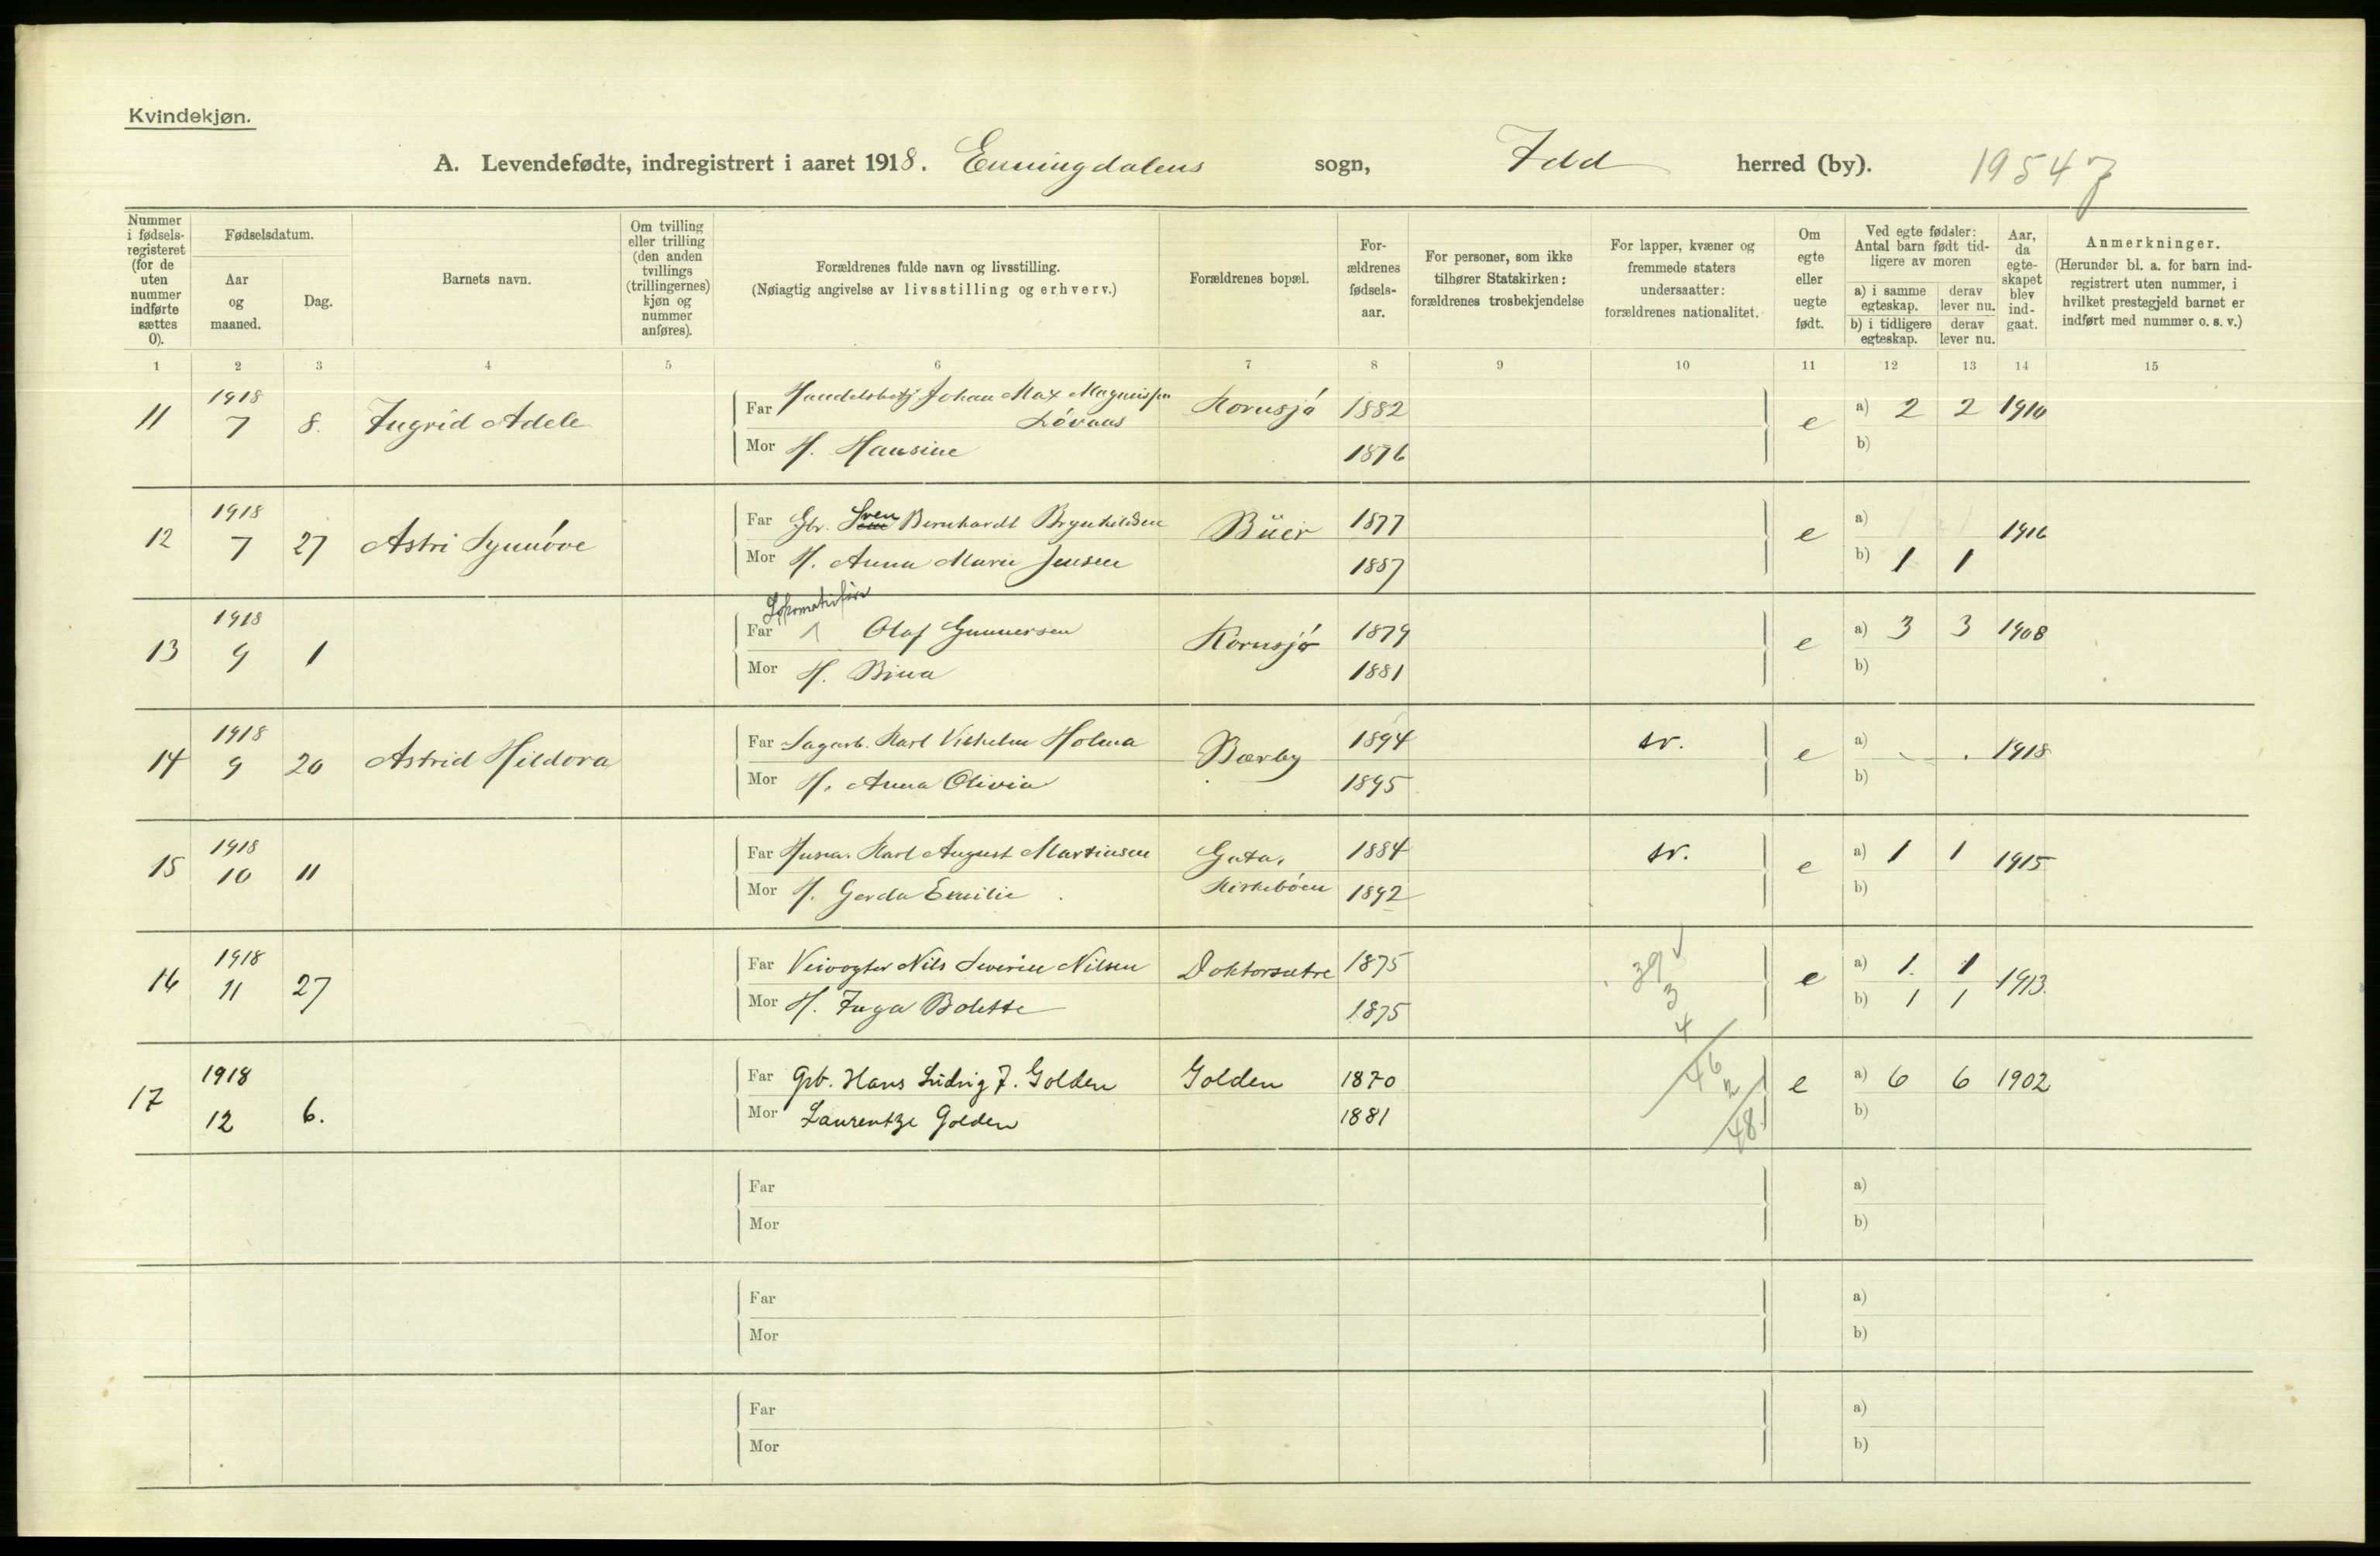 Kvindekjøn.
A. Levendefødte, indregistrert i aaret 1918. Enningdalens sogn, Idd herred (by). 19547
Nummer i fødselsregisteret (for de uten nummer indførte sættes 0).
Fødselsdatum.
Aar og maaned.
Dag.
Barnets navn.
Om tvilling eller trilling (den anden tvillings (trillingernes) kjøn og nummer anføres).
Forældrenes fulde navn og livsstilling.
(Nøiagtig angivelse av livsstilling og erhverv.)
Forældrenes bopæl.
Forældrenes fødselsaar.
For personer, som ikke tilhører Statskirken: forældrenes trosbekjendelse
For lapper, kvæner og fremmede staters undersaatter: forældrenes nationalitet.
Om egte eller uegte født.
Ved egte fødsler: Antal barn født tidligere av moren
a) i samme egteskap. derav lever nu.
b) i tidligere egteskap. derav lever nu.
Aar, da egteskapet blev indgaat.
Anmerkninger.
(Herunder bl. a. for barn indregistrert uten nummer, i hvilket prestegjeld barnet er indført med nummer o. s. v.)
1 2 3 4 5 6 7 8 9 10 11 12 13 14 15
11 1918 7 8. Ingrid Adele Far Handelsbetj Johan Max Magnussen Løvaas Kornsjø 1882 e a) 2 2 1910
Mor H. Hansine 1876 b)
12 1918 7 27 Astri Synnöve Far Gbr. Sven Bernhardt Brynhildsen Büer 1877 e a) 1916
Mor H. Anna Marie Jensen 1887 b) 1 1
13 1918 9 1 Far Olaf Gunnersen Kornsjø 1879 e a) 3 3 1908
Mor H. Bina 1881 b)
14 1918 9 20 Astrid Hildora Far Sagarb. Karl Vilhelm Holma Bærby 1894 sv. e a) - . 1918
Mor H. Anna Olivia 1895 b)
15 1918 10 11 Far Husm. Karl August Martinsen Gata, 1884 sv. e a) 1 1 1915
Mor H. Gerda Emilie Kirkeböen 1892 b)
16 1918 11 27 Far Veivogter Nils Severin Nilsen Doktorsætre 1875 39 e a) 1. 1 1913.
Mor H. Inga Bolette 1875 3 b) 1 1
4
17 1918 12 6. Far Grb. Hans Ludvig J. Golden Golden 1870 46 e a) 6 6 1902
Mor Laurentze Golden 1881 2 b)
48
Far a)
Mor b)
Far a)
Mor b)
Far a)
Mor b)